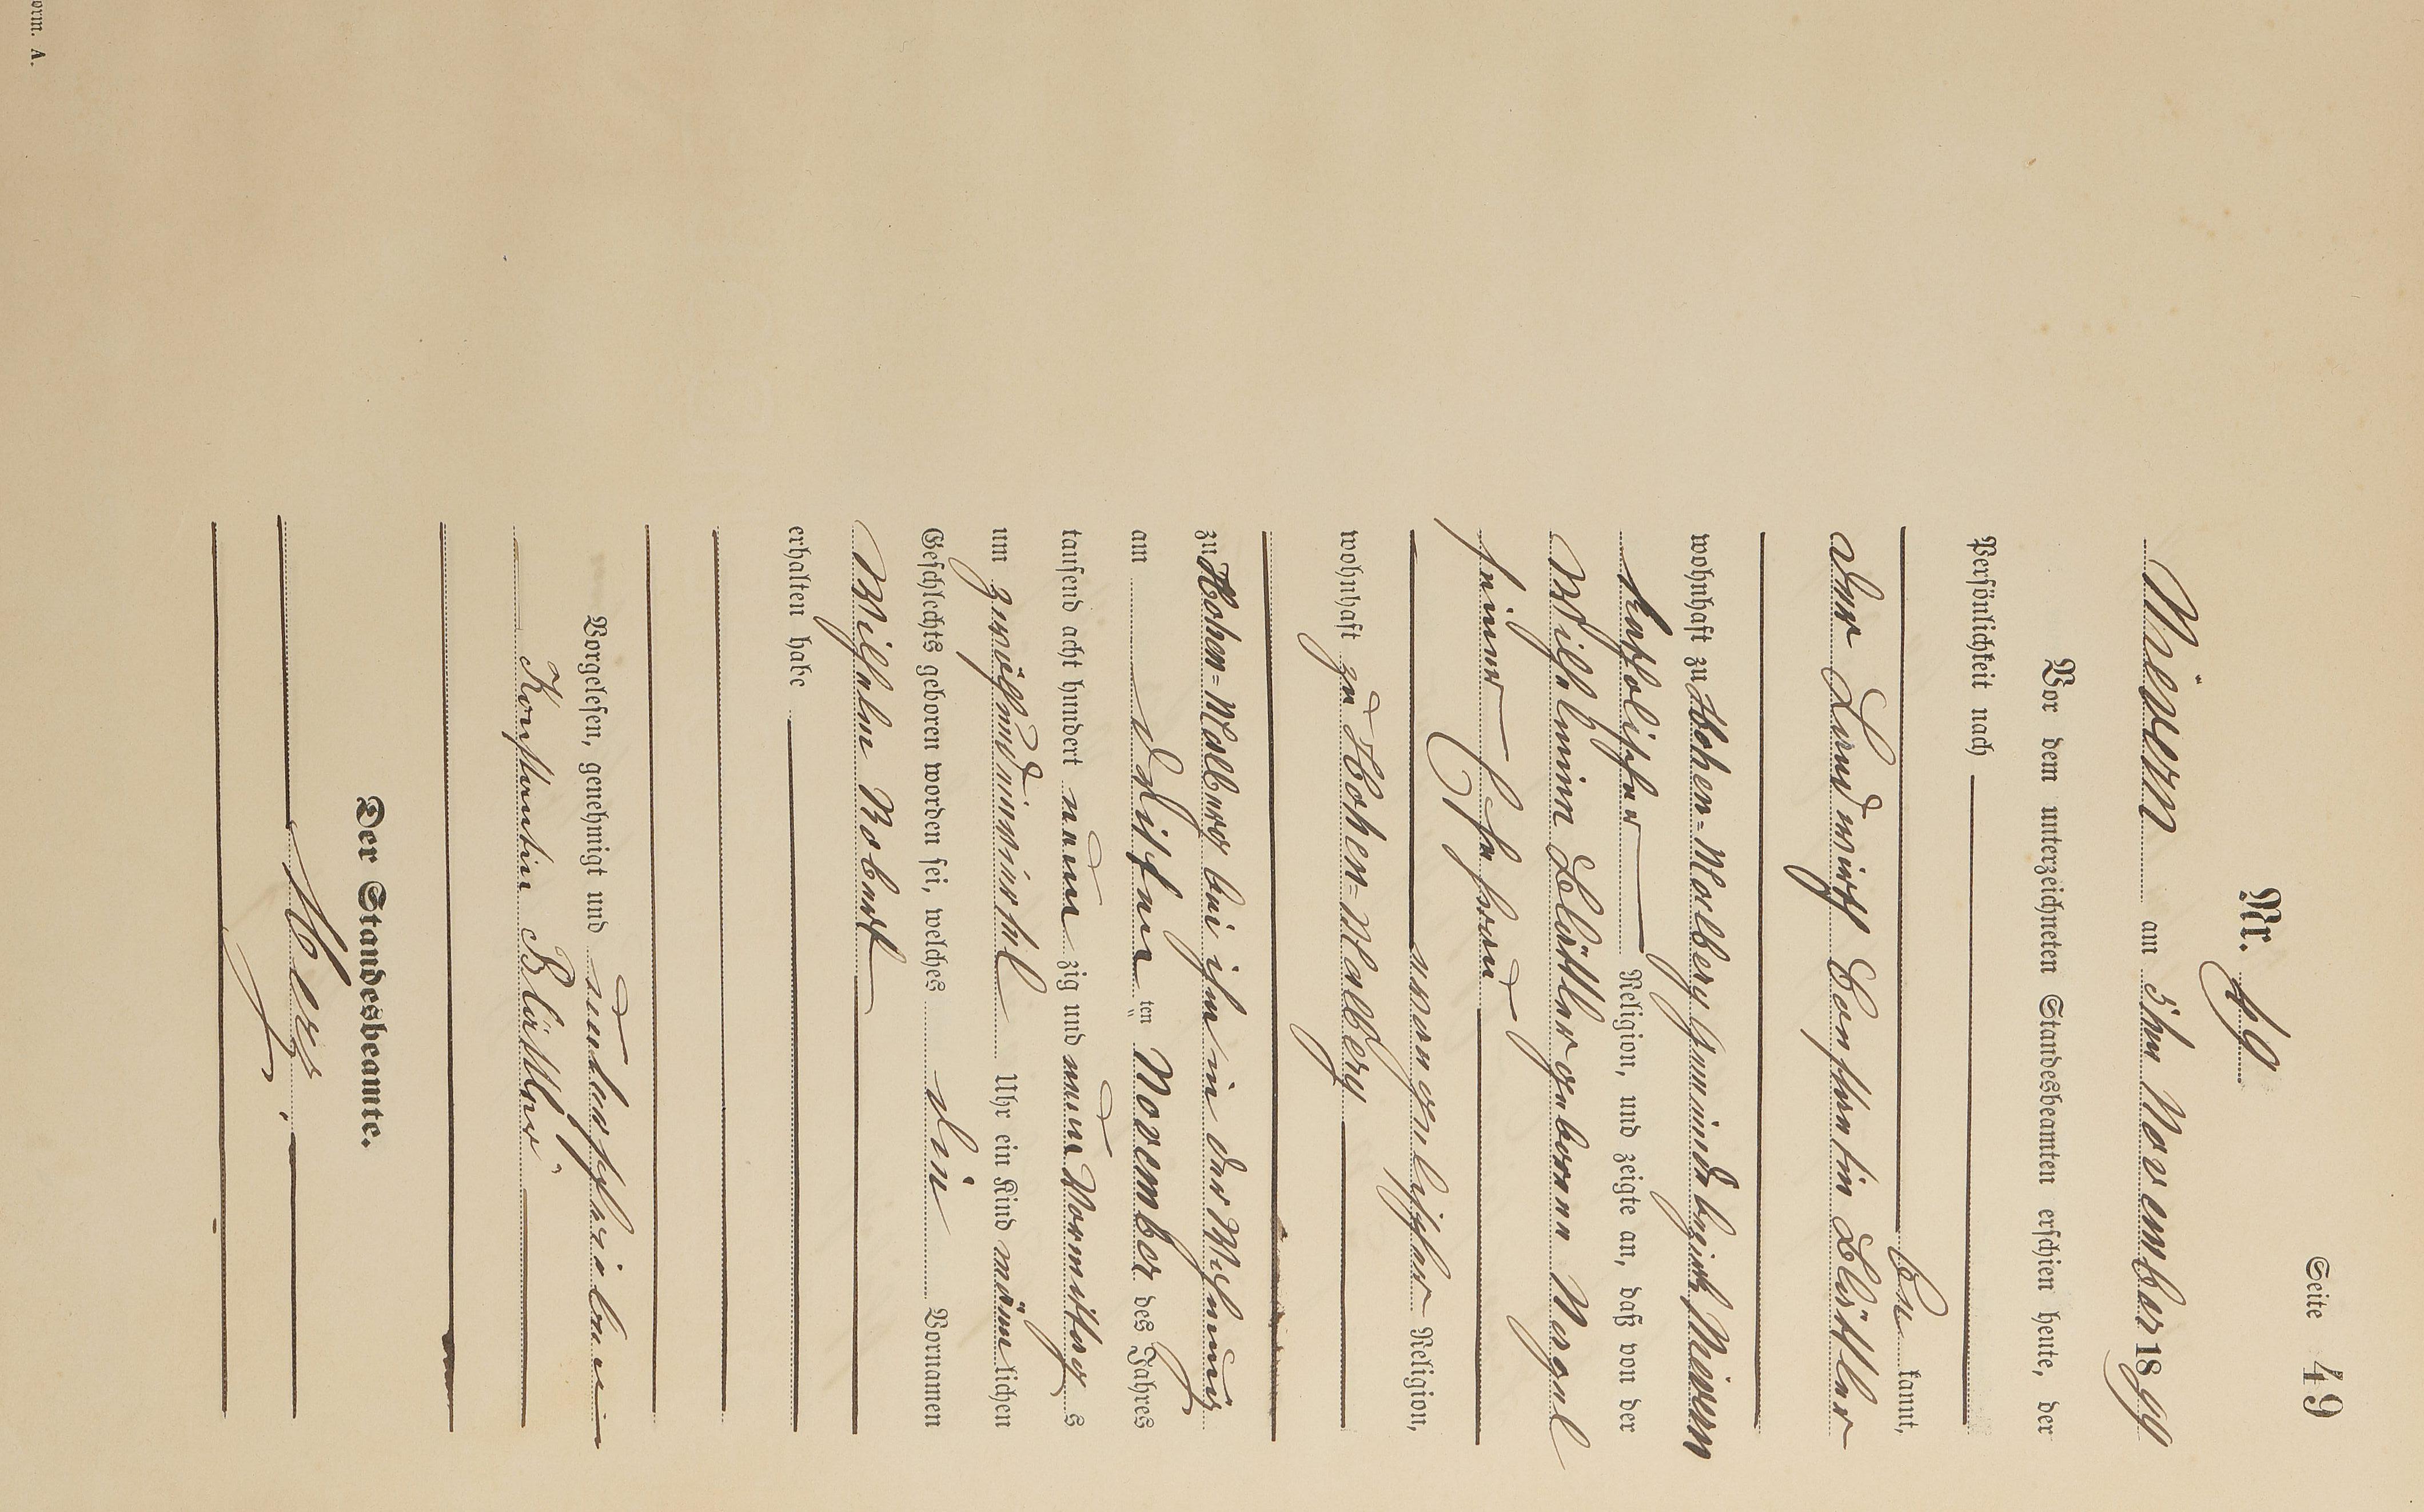 Seite 49
Nr. 49
Nievern am 5ten November 1899
Vor dem unterzeichneten Standesbeamten erschien heute, der
Persönlichkeit nach
be kannt,
der Landwirth Constantin Blättler
wohnhaft zu Hohen-Malberg Gemeindebezirk Nievern
katholischer Religion, und zeigte an, daß von der
Wilhelmina Blättler geborene Nagel
seiner Ehefrau
evangelischer Religion,
wohnhaft zu Hohen-Malberg
zu Hohen-Malberg bei ihm in der Wohnung
am dritten ten November des Jahres
tausend acht hundert neun zig und neun Vormittag s
um zwölfeinviertel Uhr ein Kind männ lichen
Geschlechts geboren worden sei, welches den Vornamen
Wilhelm Robert
erhalten habe
Vorgelesen, genehmigt und unterschrieben
Konstantin Blättler.
Der Standesbeamte.
orm. A.